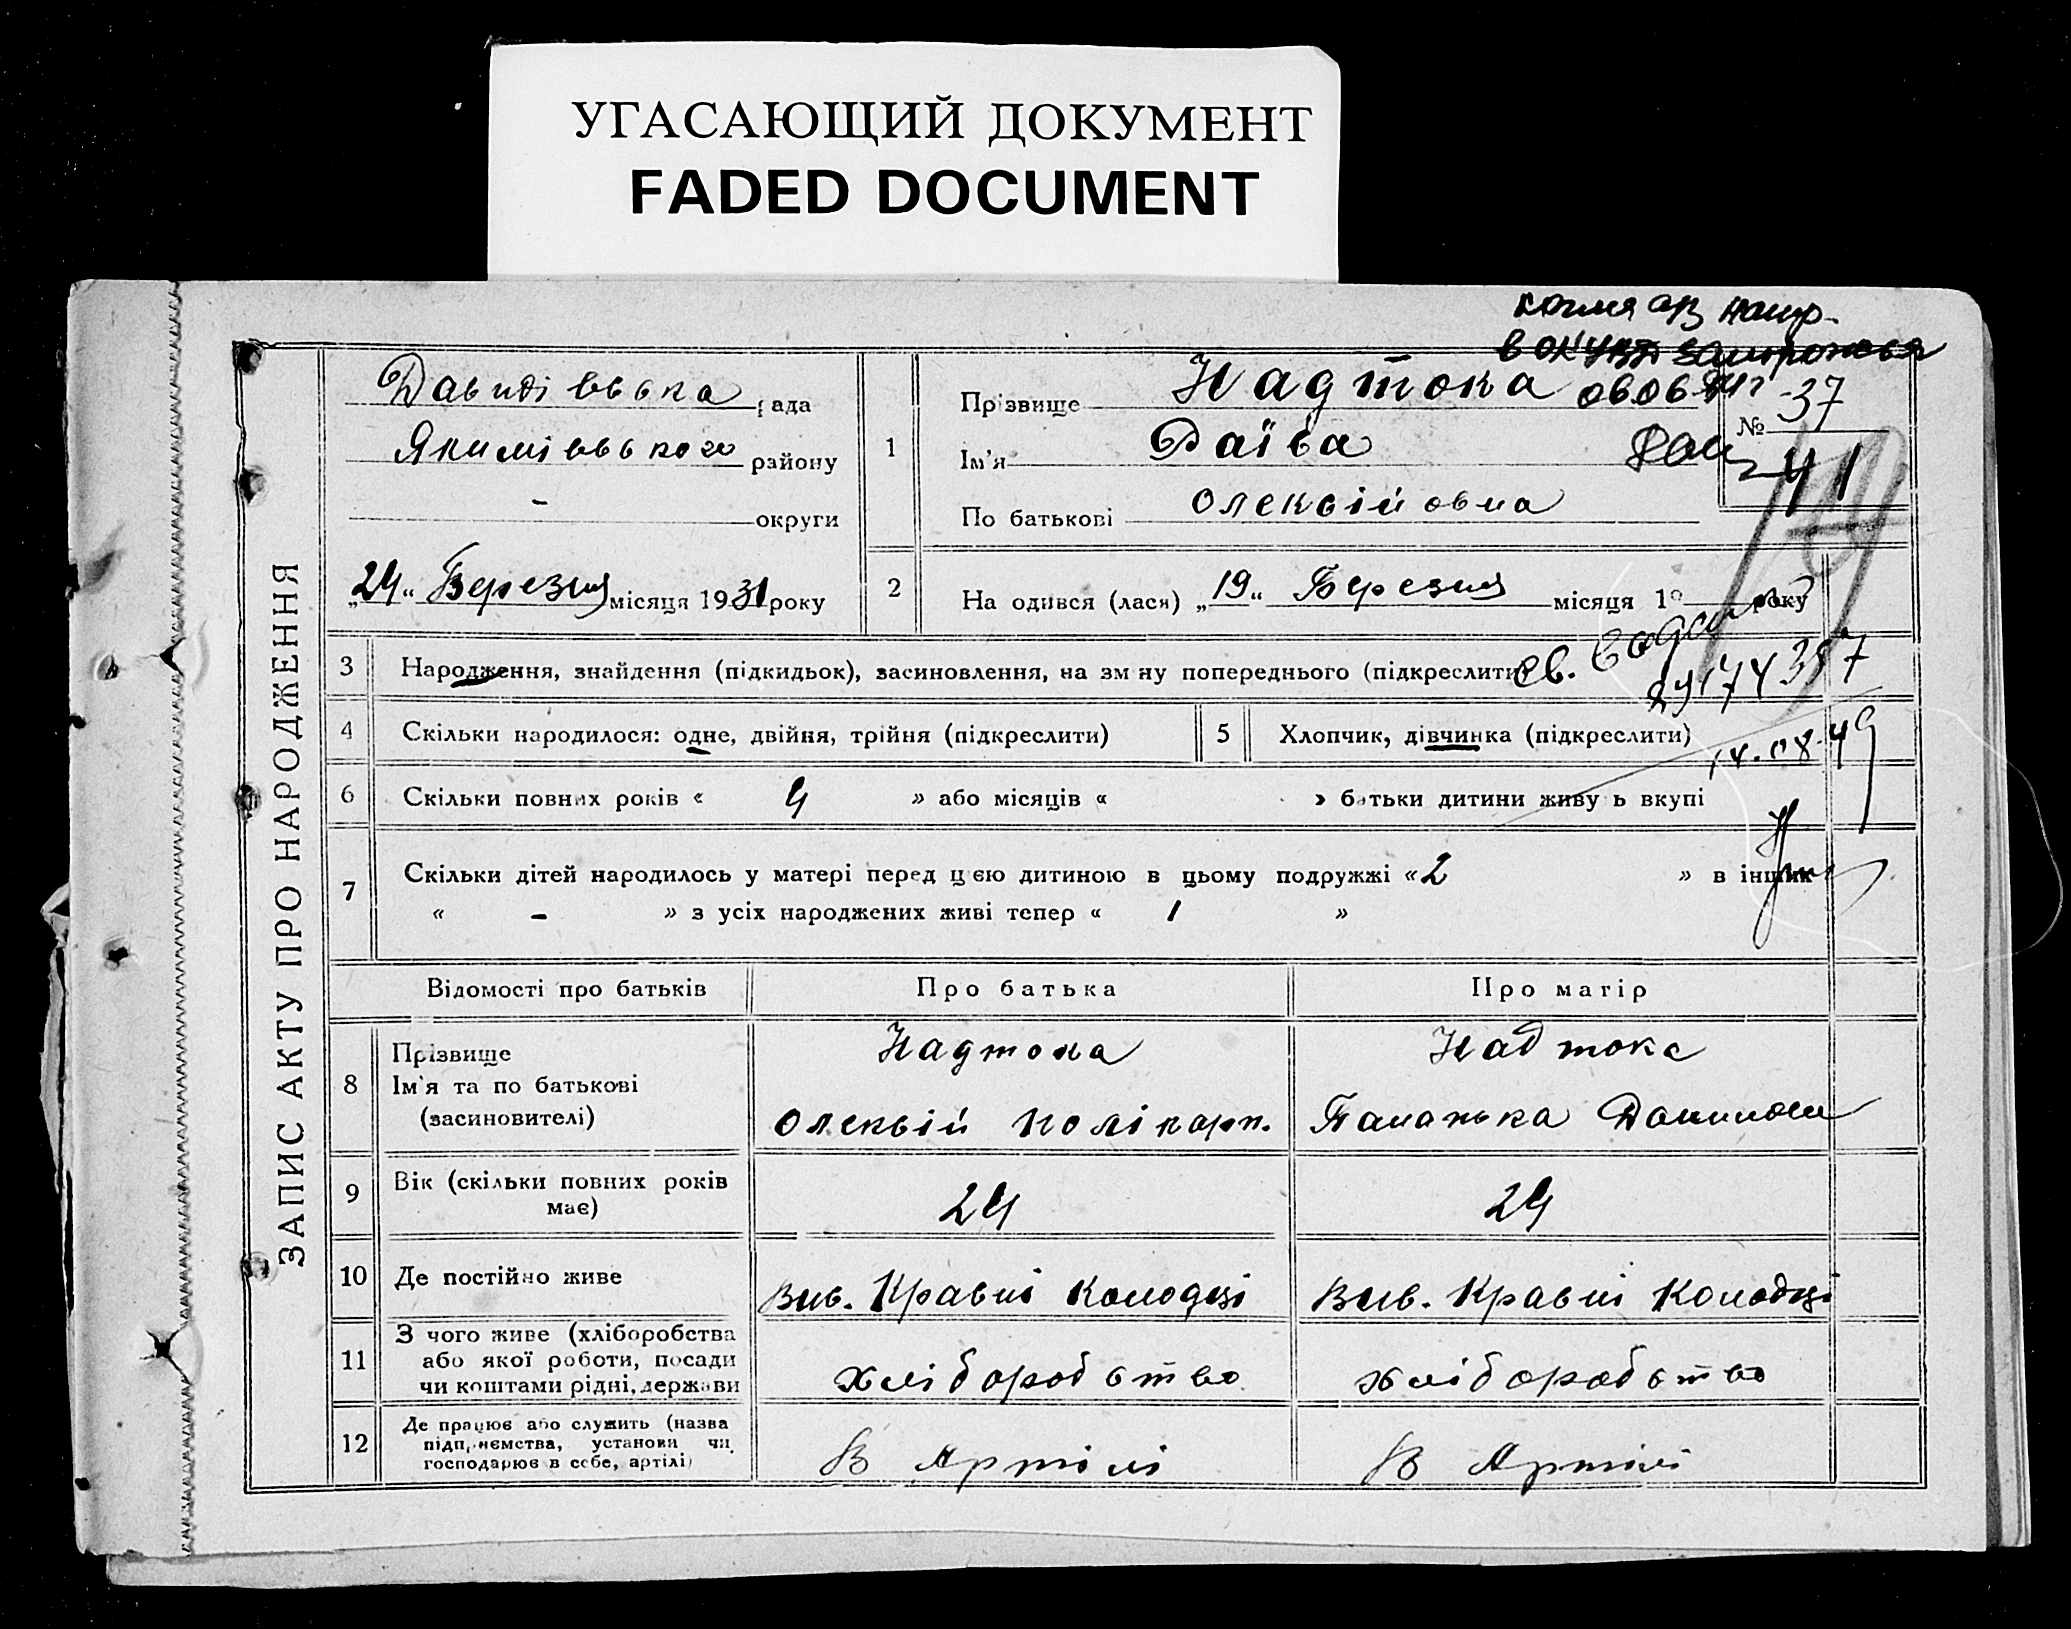 УГАСАЮЩИЙ ДОКУМЕНТ
FADED DOCUMENT
ЗАПИС АКТУ ПРО НАРОДЖЕННЯ
Давидівська рада
Якимівського району
- округи
„24“ Березня місяця 1931 року
1
Прізвище Надтока
Ім'я Раїса
По батькові Олексіївна
№ 37
41
2
На одився (лася) „19“ Березня місяця 19 року
3 Народження, знайдення (підкидьок), засиновлення, на зм ну попереднього (підкреслити)
св.
14.08.49
4 Скільки народилося: одне, двійня, трійня (підкреслити)
5 Хлопчик, дівчинка (підкреслити)
6 Скільки повних років « 4 » або місяців « » батьки дитини живу ь вкупі
7 Скільки дітей народилось у матері перед цією дитиною в цьому подружжі « 2 » в інших
« - » з усіх народжених живі тепер « 1 »
Відомості про батьків Про батька Про матір
8 Прізвище Надтока Надтока
Ім'я та по батькові
(засиновителі) Олексій Полікарп. Панаська
9 Вік (скільки повних років має) 24 24
10 Де постійно живе Вис. Кравні Колодязі Вис. Кравні Колодязі
11 З чого живе (хліборобства
або якої роботи, посади
чи коштами рідні, держави хліборобство хліборобство
12 Де працює або служить (назва
підприємства, установи чи
господарює в себе, артілі) В Артілі В Артілі